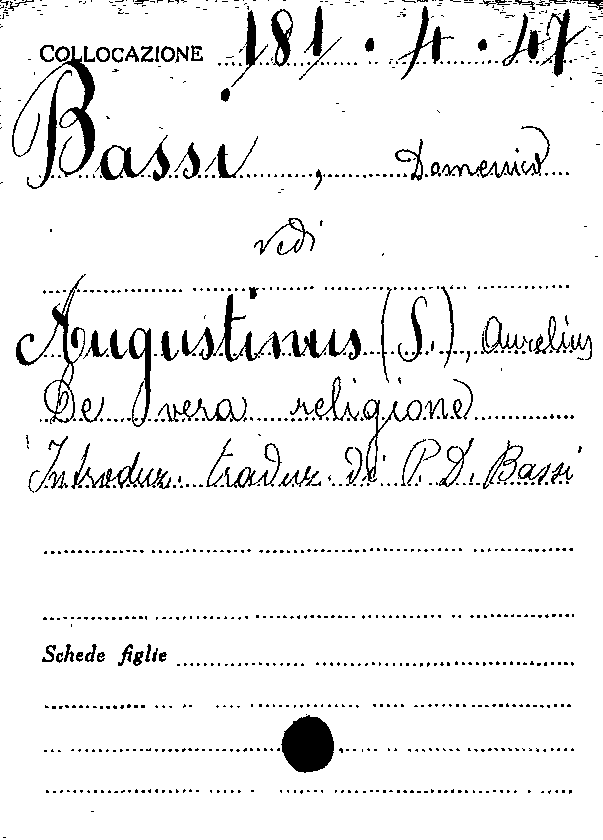 COLLOCAZIONE 181.4.47
Bassi, Domenico
vedi
Augustinus (S.), Aurelius
De vera religione
Introduz. traduz. di P. D. Bassi
Schede figlie